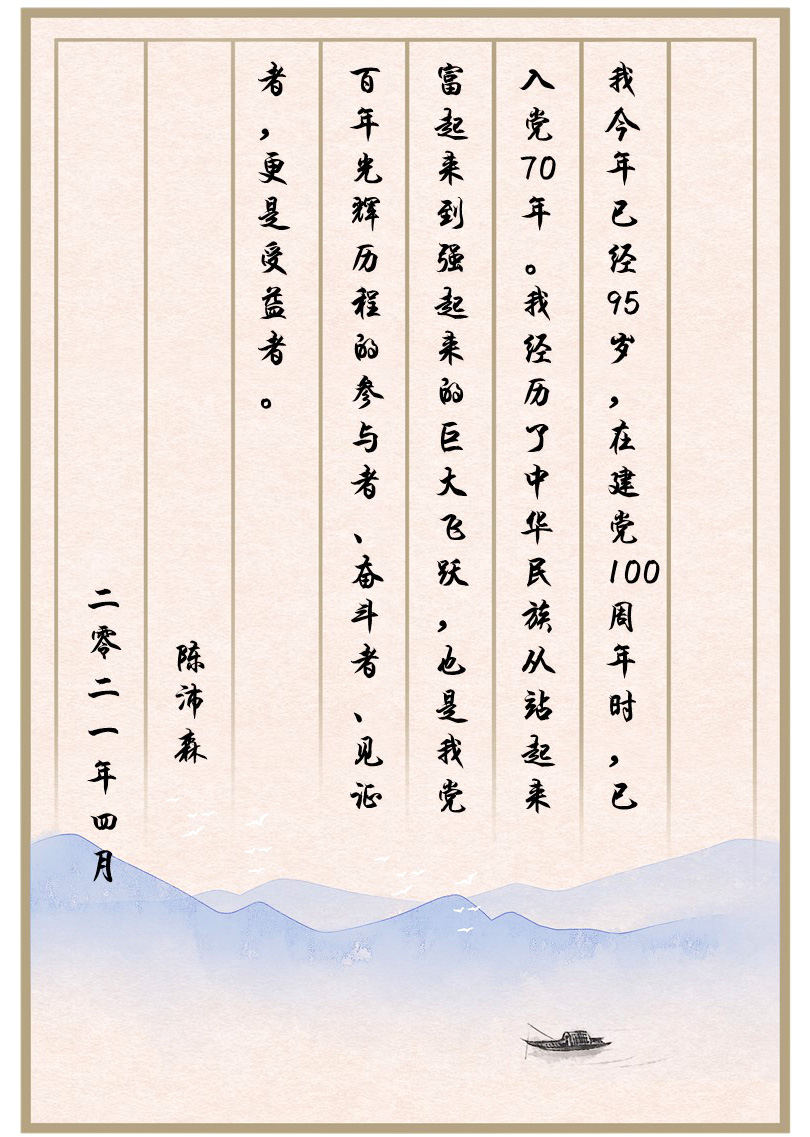 我今年已经95岁，在建党100周年时，已
入党70年。我经历了中华民族从站起来
富起来到强起来的巨大飞跃，也是我党
百年光辉历程的参与者、奋斗者、见证
者，更是受益者。
陈沛森
二零二一年四月